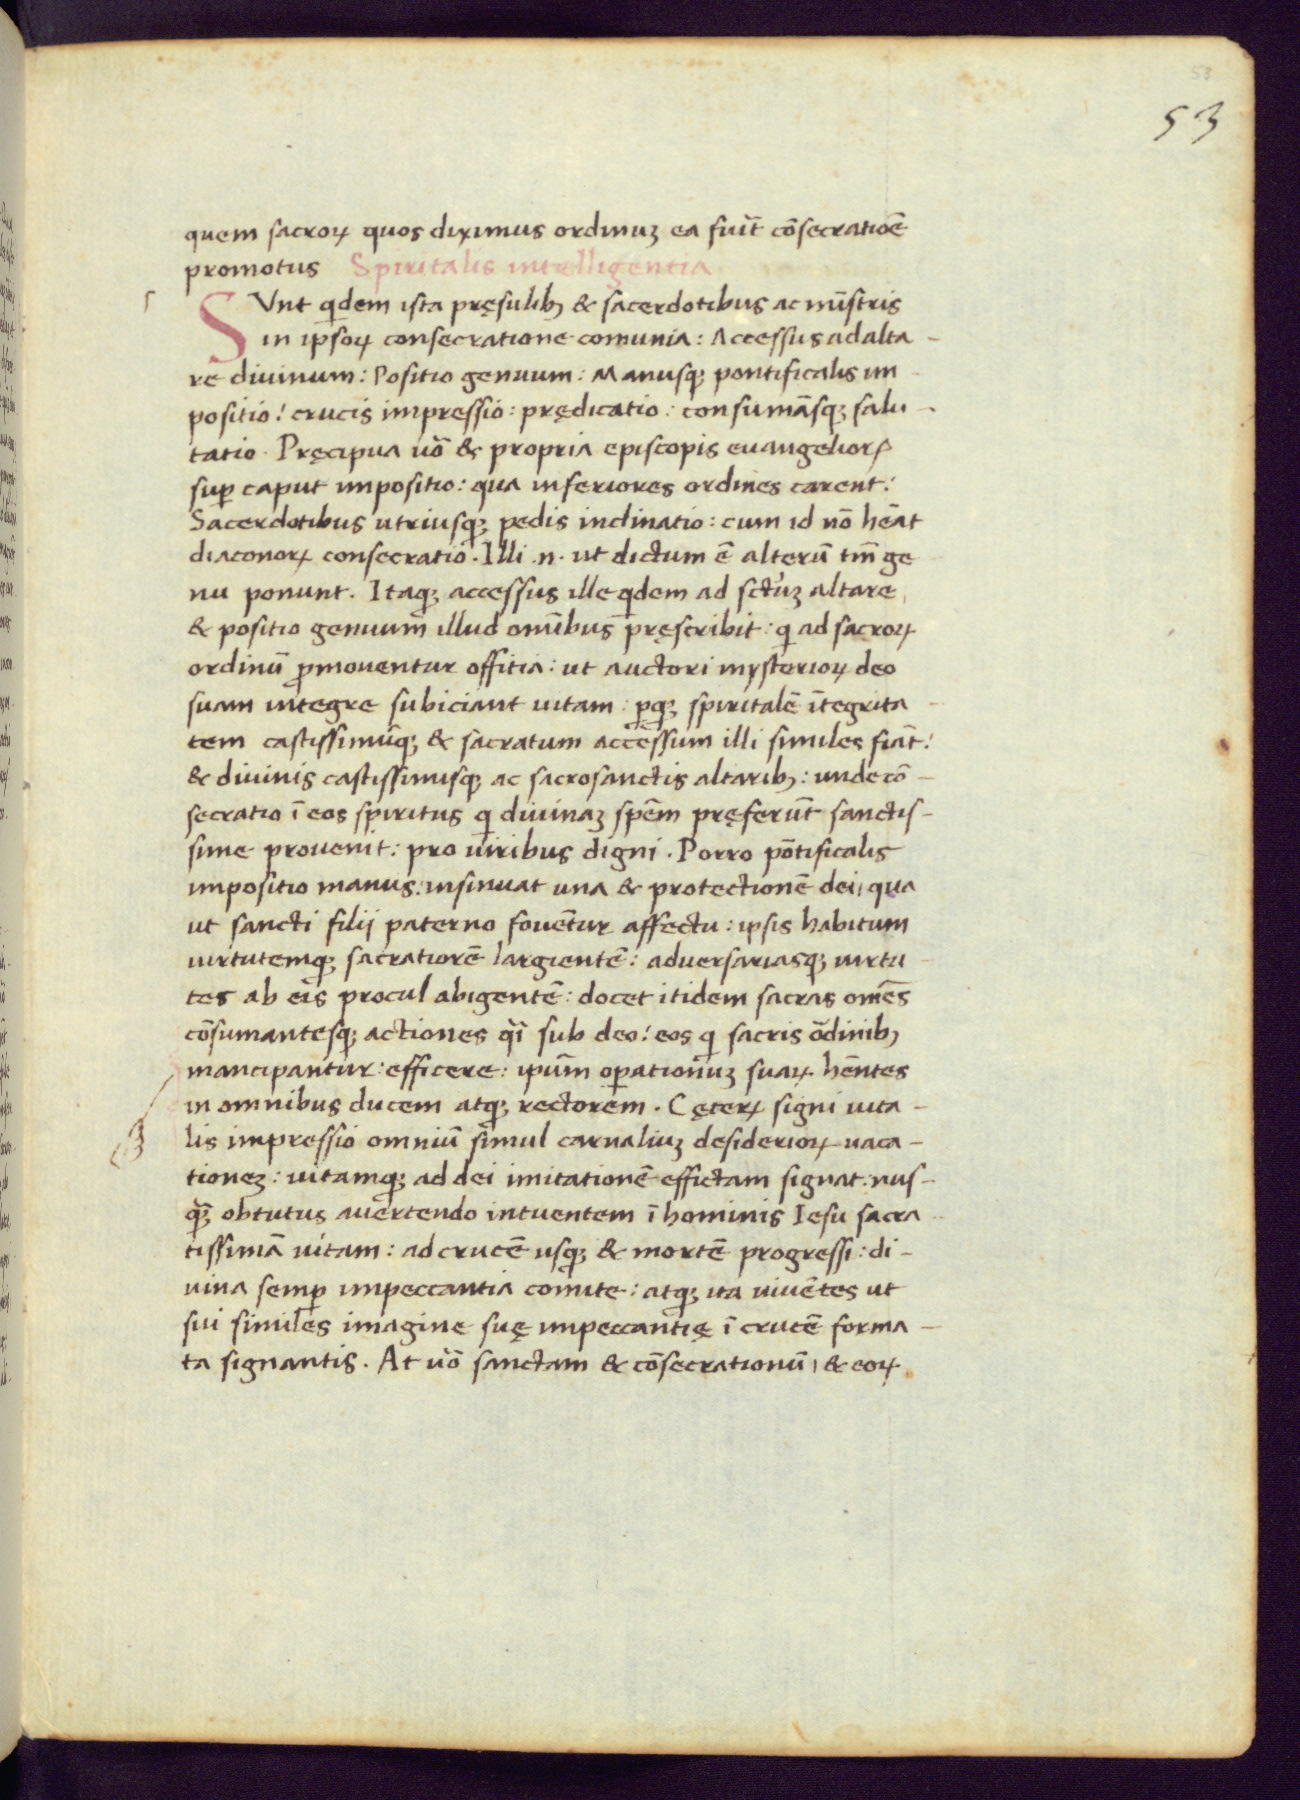 53
53
quem sacroꝝ quos diximus ordinuꝫ ea fuit̄ cōsecratiōe
promotus Spiritalis intelligentia
SVnt qͥdem ista pręsulibꝫ & sacerdotibus ac mīstris
in ipsoꝝ consecratione comunia: Accessus ad alta-
re divinum: Positio genuum: Manusqꝫ pontificalis im
positio! crucis impressio: prędicatio: consumāsqꝫ salu-
tatio. Pręcipua uō & propria episcopis euangelioꝝ
suꝑ caput impositio: qua inferiores ordines carent!
Sacerdotibus utriusqꝫ pedis inclinatio: cum id nō hēat
diaconoꝝ consecratio. Illi .n. ut dictum ē alterū tm̄ ge
nu ponunt. Itaqꝫ accessus ille qͥdem ad sctūꝫ altare,
& positio genuum illud omībus pręscribit: qͥ ad sacroꝝ
ordinū ꝓmouentur offitia: ut auctori mysterioꝝ deo
suam integre subiciant uitam: ꝑqꝫ spiritalē ītegrita-
tem castissimūqꝫ & sacratum accessum illi similes fiāt!
& divinis castissimisqꝫ ac sacrosanctis altaribꝫ: unde cō-
secratio ī eos spiritus qͥ divinaꝫ spēm pręferūt sanctis-
sime provenit: pro uiribus digni. Porro pōtificalis
impositio manus: insinuat una & protectionē dei, qua
ut sancti filij paterno fouētur affectu: ipsis habitum
uirtutemqꝫ sacratiorē largientē: adversariasqꝫ uirtu-
tes ab eis procul abigentē: docet itidem sacras omēs
cōsumantesqꝫ actiones qͣī sub deo! eos qͥ sacris ōdinibꝫ
mancipantur: efficere: ipūm oꝑationuꝫ suaꝝ hēntes
in omnibus ducem atqꝫ rectorem. Cęteꝝ signi uita-
lis impressio omniū simul carnaliuꝫ desiderioꝝ uaca-
tioneꝫ: uitamqꝫ ad dei imitationē effictam signat: nus-
qͣꝫ obtutus avertendo intuentem ī hominis Iesu sacra-
tissimā uitam: ad crucē usqꝫ & mortē progressi: di-
uina semꝑ impeccantia comite: atqꝫ ita uiuētes ut
sui similes imagine suę impeccantię ī crucē forma-
ta signantis. At uō sanctam & cōsecrationū, & eoꝝ